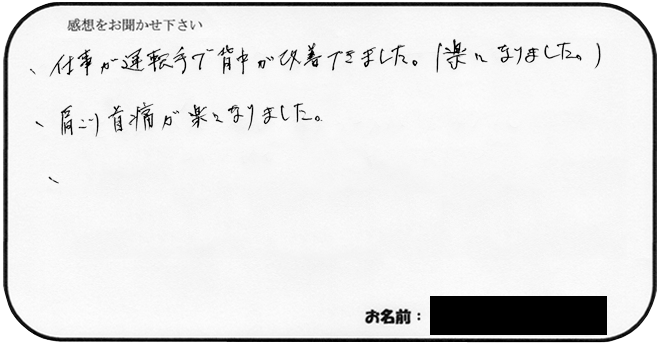 感想をお聞かせ下さい
、仕事が運転手で背中が改善できました。(楽になりました。)
、肩こり首痛が楽になりました。
、
お名前: